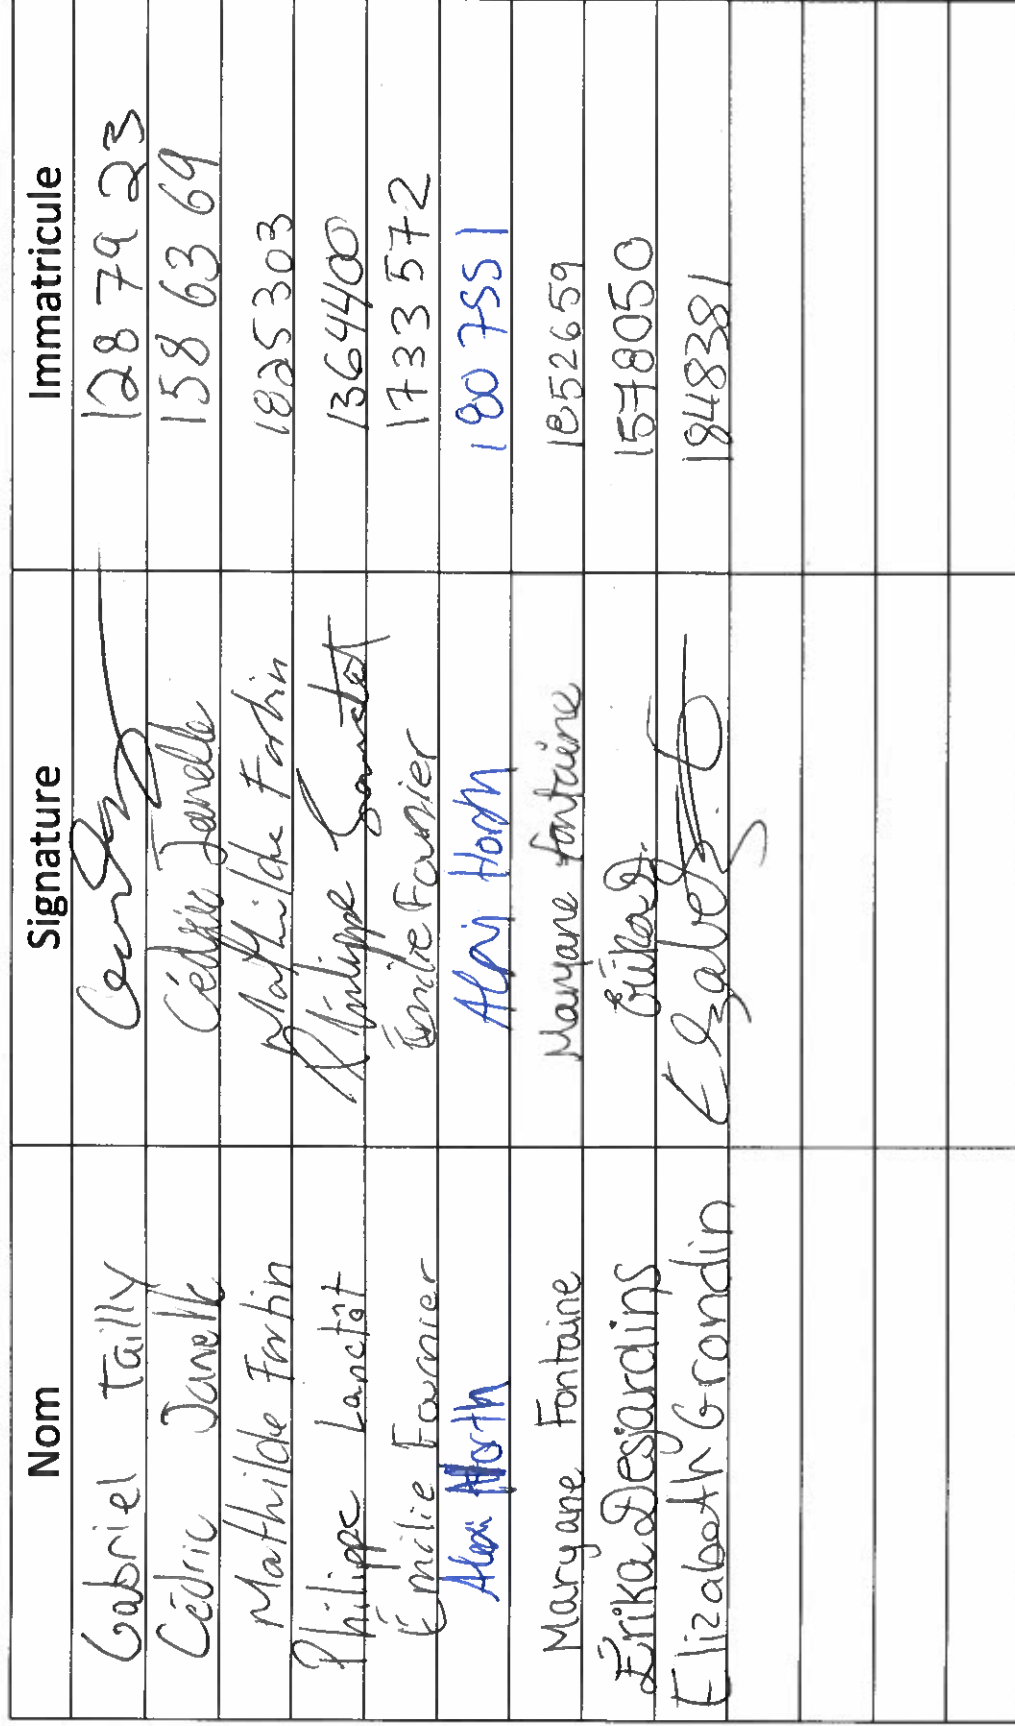 Nom Signature Immatricule
Gabriel Tailly 128 79 23
Cédric Janelle Cédric Janelle 158 63 69
Mathilde Fortin Mathilde Fortin 1825303
Philippe Lanctôt Philippe Lanctôt 1364400
Émilie Fournier Émilie Fournier 1733572
Alexi North 1807551
Maryane Fontaine Maryane Fontaine 1852659
Érika Desjardins Érika D. 1578050
Elizabeth Grondin Elizabeth 1848381